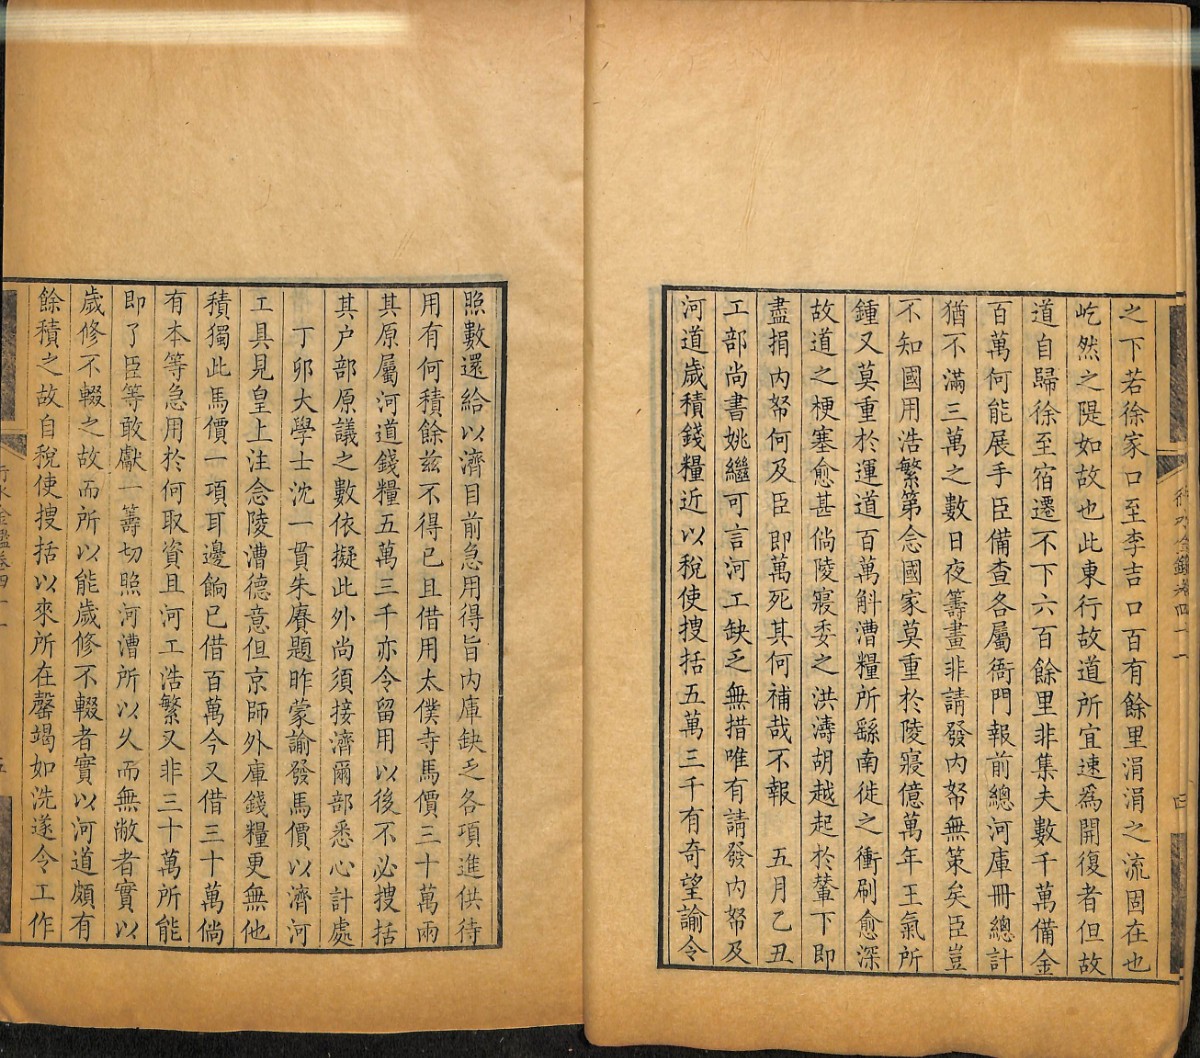 之下若徐家口至李吉口百有餘里涓涓之流固在也
屹然之隄如故也此東行故道所宜速爲開復者但故
道自歸徐至宿遷不下六百餘里非集夫數千萬備金
百萬何能展手臣備查各屬衙門報前總河庫冊總計
猶不滿三萬之數日夜籌畫非請發內帑無策矣臣豈
不知國用浩繁第念國家莫重於陵寢億萬年王氣所
鍾又莫重於運道百萬斛漕糧所繇南徙之衝刷愈深
故道之梗塞愈甚倘陵寢委之洪濤胡越起於輦下即
盡捐內帑何及臣即萬死其何補哉不報　五月乙丑
工部尚書姚繼可言河工缺乏無措唯有請發內帑及
河道歲積錢糧近以稅使搜括五萬三千有奇望諭令
照數還給以濟目前急用得旨內庫缺乏各項進供待
用有何積餘茲不得已且借用太僕寺馬價三十萬兩
其原屬河道錢糧五萬三千亦令留用以後不必搜括
其户部原議之數依擬此外尚須接濟爾部悉心計處
丁卯大學士沈一貫朱賡題昨蒙諭發馬價以濟河
工具見皇上注念陵漕德意但京師外庫錢糧更無他
積獨此馬價一項耳邊餉已借百萬今又借三十萬倘
有本等急用於何取資且河工浩繁又非三十萬所能
即了臣等敢獻一籌切照河漕所以久而無敝者實以
歲修不輟之故而所以能歲修不輟者實以河道頗有
餘積之故自稅使搜括以來所在罄竭如洗遂令工作